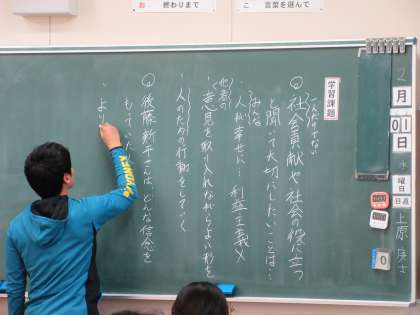 お 終わりまで
こ 言葉を選んで
2月01日
水曜日
日直
上原
学習課題
社会貢献や社会の役に立つ
と聞いて大切にしたいことは…
みんな
・人が幸せに… 利益主義×
他者の
・意見を取り入れながらよい形を
・人のための行動をしていく
後藤新平さんは、どんな信念を
もっていた
・より
0